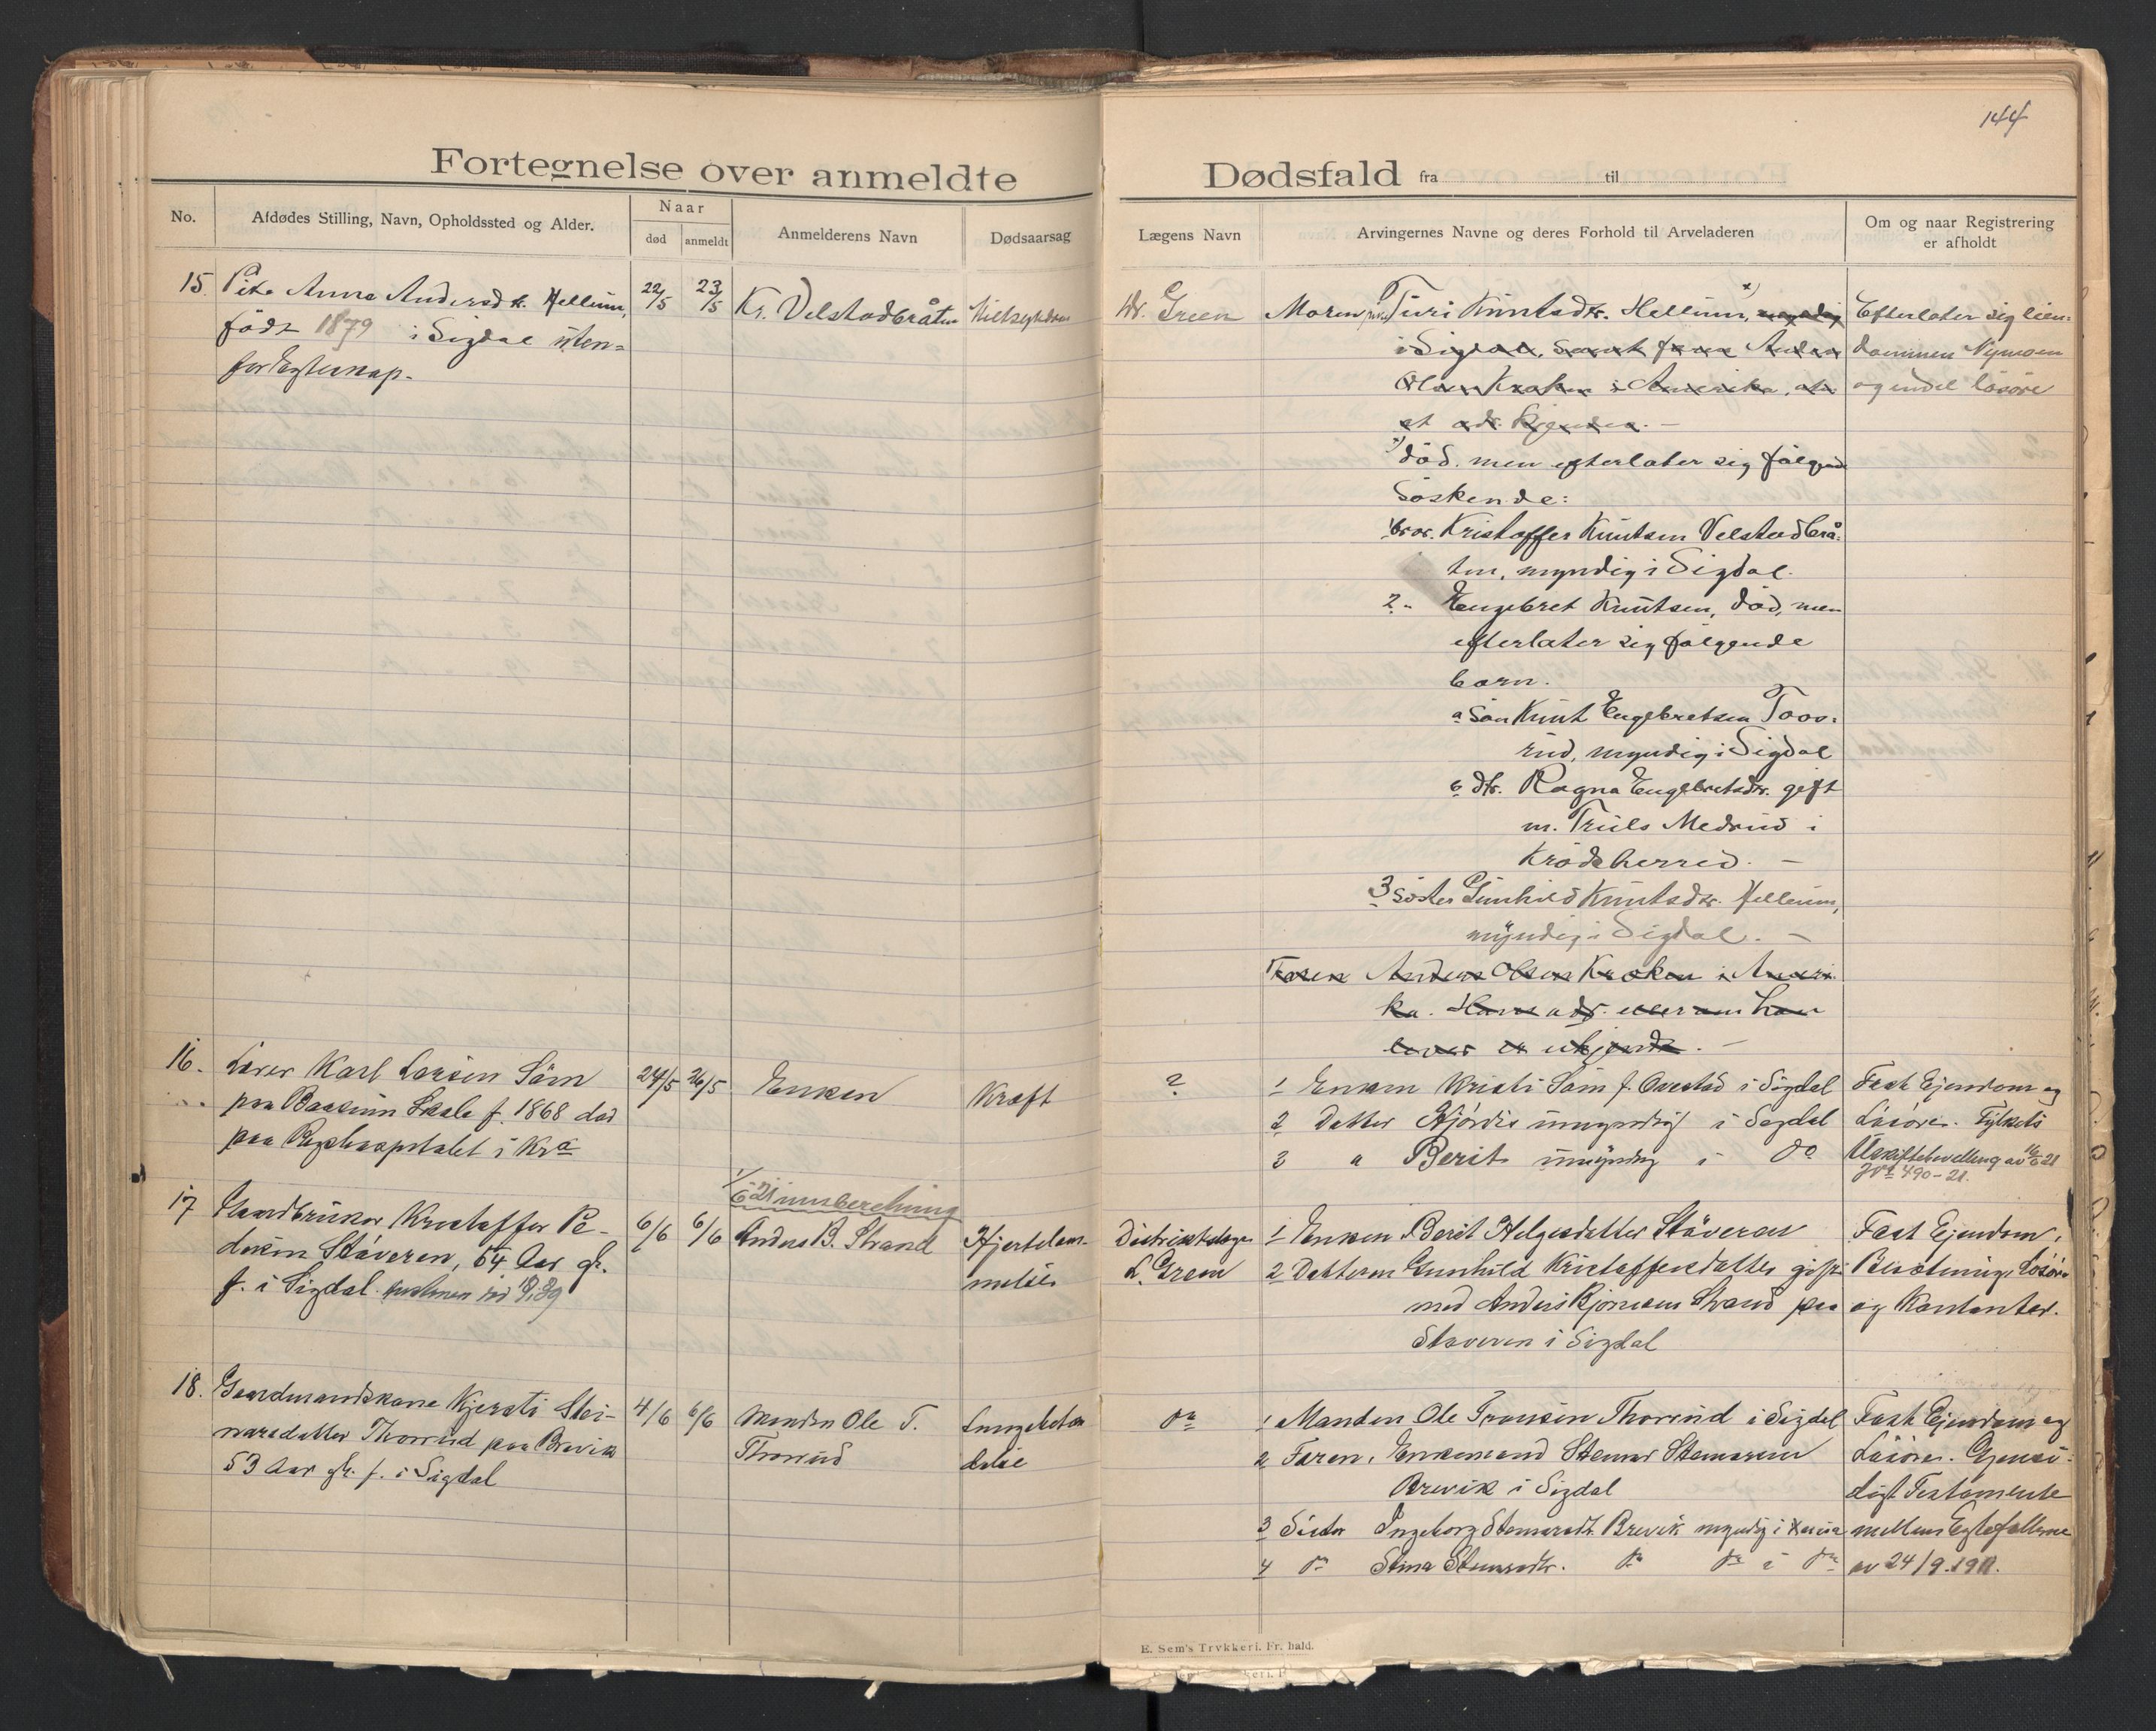 144
Fortegnelse over anmeldte Dødsfald fra til
No.
Afdødes Stilling, Navn, Opholdssted og Alder.
Naar
død
anmeldt
Anmelderens Navn
Dødsaarsag
Lægens Navn
Arvingernes Navne og deres Forhold til Arveladeren
Om og naar Registrering
er afholdt
15. Pike Anna Andersd. Hellum,
født 1879 i Sigdal uten-
for Egteskap.
22/5
23/5
Kr. Velstadbråten
Dr. Green
Moren Turi Knutsdtr. Hellum,
i Sigdal, samt faren Anders
Olsen Kroken i Amerika,
x) død, men efterlater sig følgende
søskende:
1 bror. Kristoffer Knutsen Velstadbrå-
ten, myndig i Sigdal.
2 - Engebret Knutsen, død, men
efterlater sig følgende
børn.
a søn Knut Engebretsen Too-
rud, myndig i Sigdal
b dtr. Ragna Engebretsdtr. gift
m. Truls Medrud i
Krødsherred. —
3 søster Gunhild Knutsdtr. Hellum,
myndig i Sigdal. —
Faren Anders Olsen Kroken i Ameri-
ka. Hans adr. eller om han
lever er ukjendt. —
Efterlater sig eien-
dommen Nymoen
og endel løsøre
16. Lærer Karl Larsen
paa Skole f. 1868 død
paa i Kra
24/5
26/5
Enken
Kræft
?
1 Enken Kristi f. i Sigdal
2 Datter Hjørdis umyndig i Sigdal
3 " Berit umyndig i do
Fast Ejendom og
Løsøre. Fylkets
490-21.
17 Gaardbruker Kristoffer Pe-
dersen Støveren, 64 Aar gl.
f. i Sigdal
6/6
6/6
Anders B. Strand
Hjertelam-
melse
Distriktslæge
Green
1 Enken Berit Helgesdatter Støveren
2 Datteren Gunhild Kristoffersdatter gift
med Anders Bjørnsen Strand paa
Støveren i Sigdal
Fast Ejendom,
Besætning, Løsøre
og Kontanter.
18. Gaardmandskone Kjersti Stei-
narsdatter Thorrud paa Brevik
53 Aar gl. f. i Sigdal
4/6
6/6
Manden Ole T.
Thorrud
do
1 Manden Ole Thorrud i Sigdal
2 Faren, Enkemand Steinar Steinarsen
Brevik i Sigdal
3 Søster Ingeborg Steinarsdt. Brevik myndig i
4 do Stina Steinarsdtr. do do i do
Fast Ejendom og
Løsøre. Gjensi-
digt Testamente
mellem Egtefællerne
av 24/9.1911.
E. Sem's Trykkeri. Fr.hald.